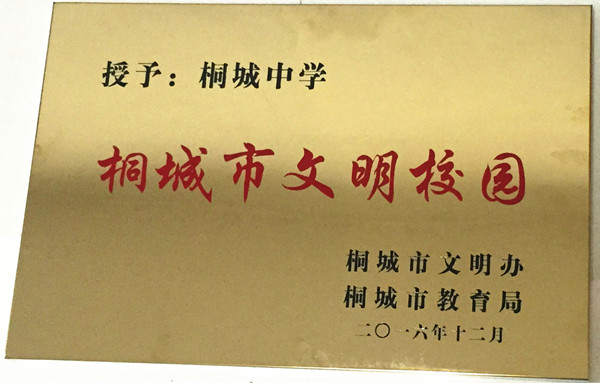 授予：桐城中学
桐城市文明校园
桐城市文明办
桐城市教育局
二〇一六年十二月